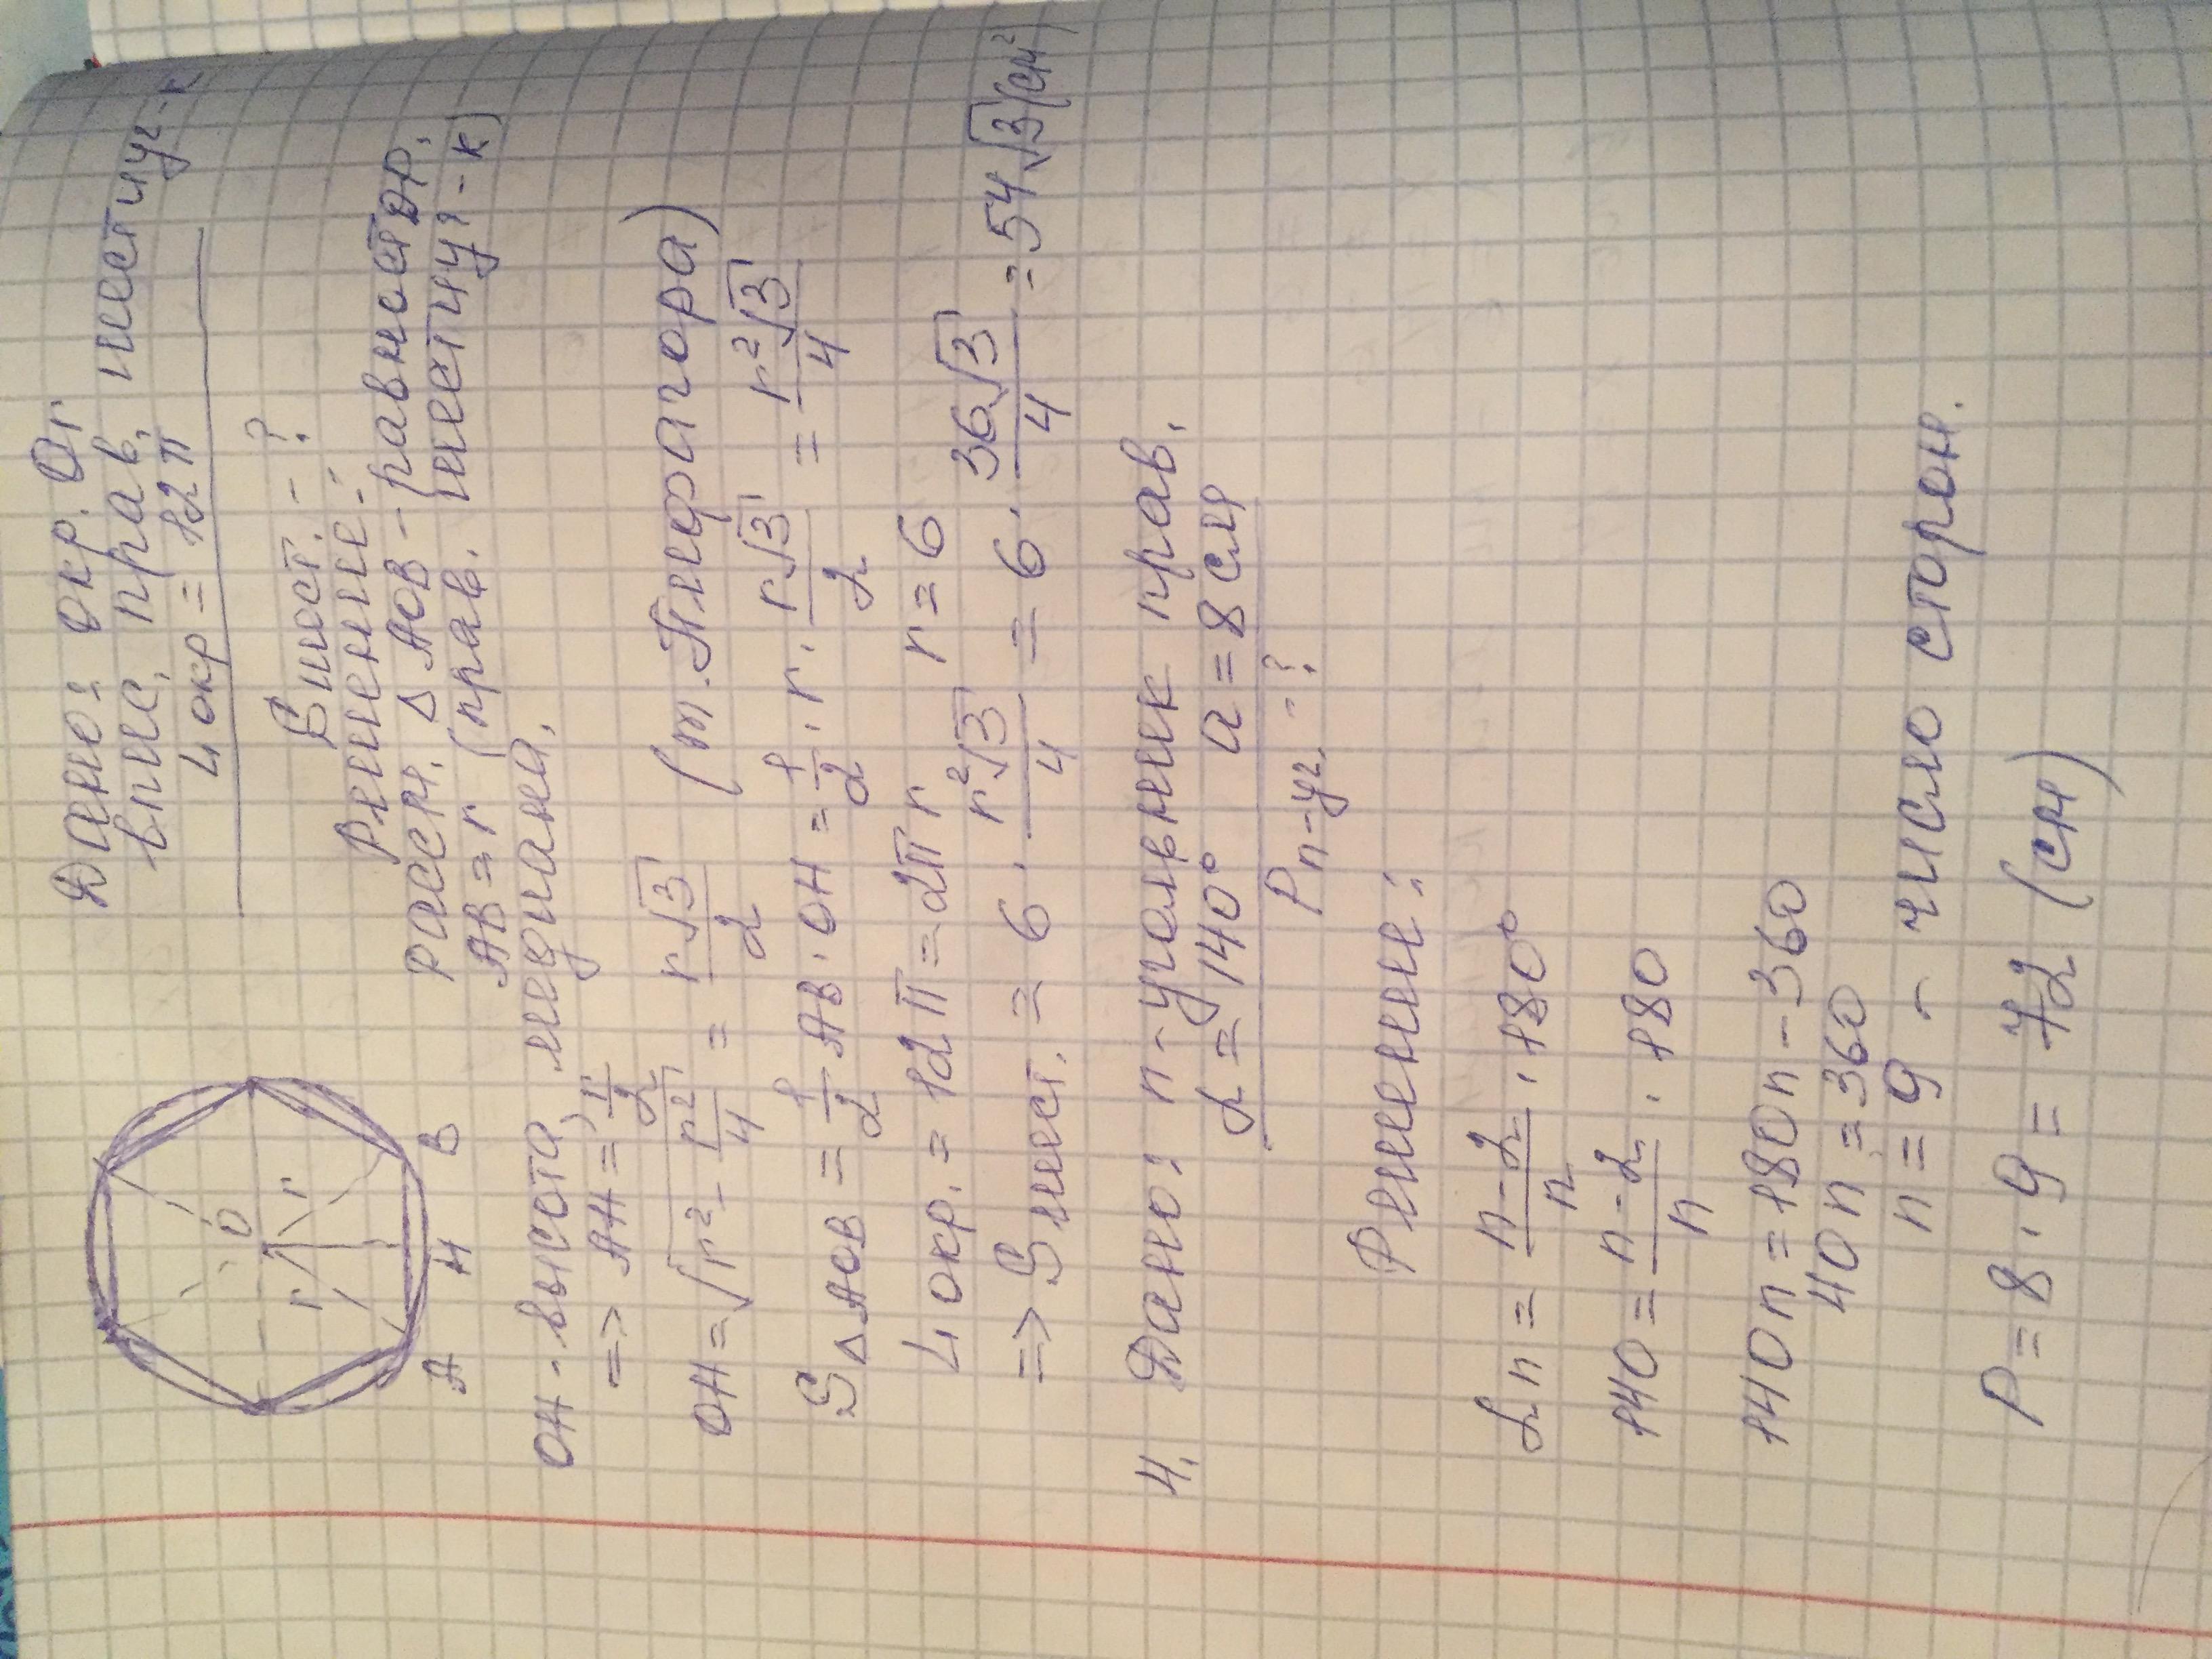 Дано: окр. Or
впис. прав. шестиуг-к
L окр = 12π
S шест. - ?
Решение:
Рассм. Δ AOB - равностор.
AB = r (прав. шестиуг-к)
O
r
r
A H B
OH - высота, медиана.
=> AH = r/2
OH = √(r² - r²/4) = r√3/2 (т. Пифагора)
S Δ AOB = 1/2 AB · OH = 1/2 · r · r√3/2 = r²√3/4
L окр. = 12π = 2πr r = 6
=> S шест. = 6 · r²√3/4 = 6 · 36√3/4 = 54√3 (см²)
4. Дано: n-угольник прав.
α = 140° a = 8 см
P n-уг. - ?
Решение:
αn = n-2/n · 180°
140 = n-2/n · 180
140n = 180n - 360
40n = 360
n = 9 - число сторон.
P = 8 · 9 = 72 (см)